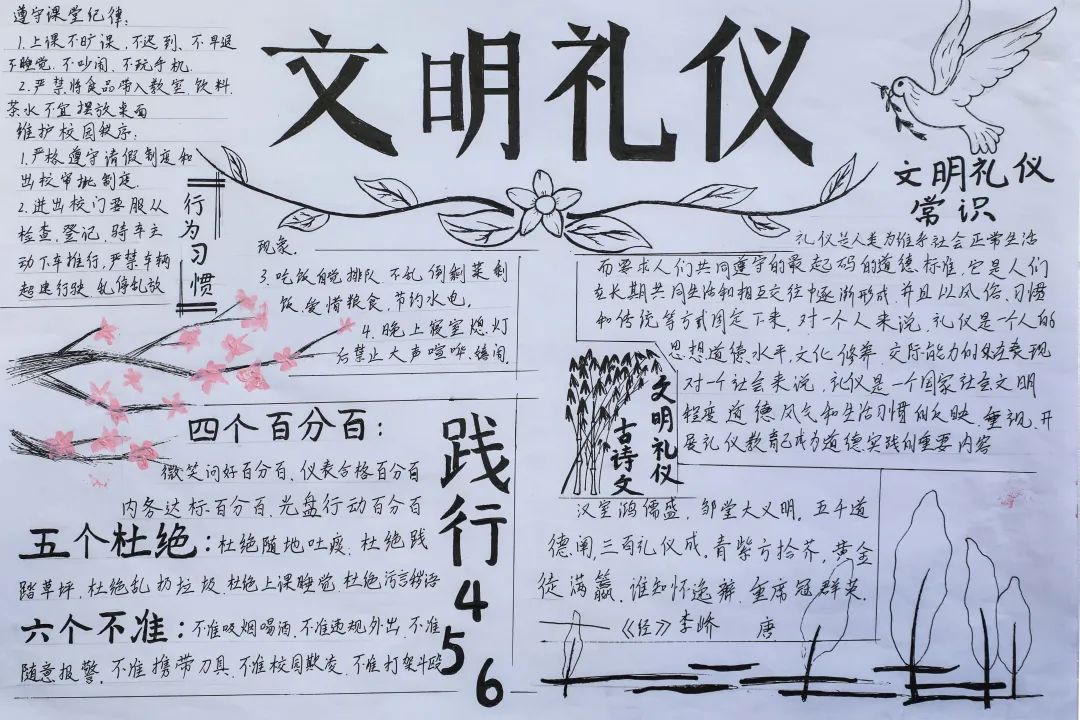 文明礼仪
遵守课堂纪律:
1.上课不旷课,不迟到、不早退
不睡觉、不吵闹、不玩手机.
2.严禁将食品带入教室.饮料.
茶水不宜摆放桌面
维护校园秩序:
1.严格遵守请假制度和
出校审批制度.
2.进出校门要服从
检查,登记,骑车主
动下车推行,严禁车辆
超速行驶、乱停乱放
行为习惯
现象.
3.吃饭自觉排队.不乱倒剩菜剩
饭、爱惜粮食,节约水电.
4.晚上寝室熄灯
后禁止大声喧哗、嬉闹.
四个百分百:
微笑问好百分百、仪表合格百分百
内务达标百分百、光盘行动百分百
五个杜绝:杜绝随地吐痰、杜绝践
踏草坪,杜绝乱扔垃圾、杜绝上课睡觉、杜绝污言秽语
六个不准:不准吸烟喝酒、不准违规外出、不准
随意报警,不准携带刀具、不准校园欺凌、不准打架斗殴
践行456
文明礼仪
常识
礼仪是人类为维系社会正常生活
而要求人们共同遵守的最起码的道德标准,它是人们
在长期共同生活和相互交往中逐渐形成,并且以风俗、习惯
和传统等方式固定下来,对一个人来说,礼仪是一个人的
思想道德水平,文化修养,交际能力的外在表现
对一个社会来说,礼仪是一个国家社会文明
程度、道德风气和生活习惯的反映.重视、开
展礼仪教育已成为道德实践的重要内容
文明礼仪
古诗文
汉室鸿儒盛,邹堂大义明。五千道
德阐,三百礼仪成,青紫方拾芥,黄金
徒满籝,谁知怀逸辩.重席冠群英.
《经》李峤 唐